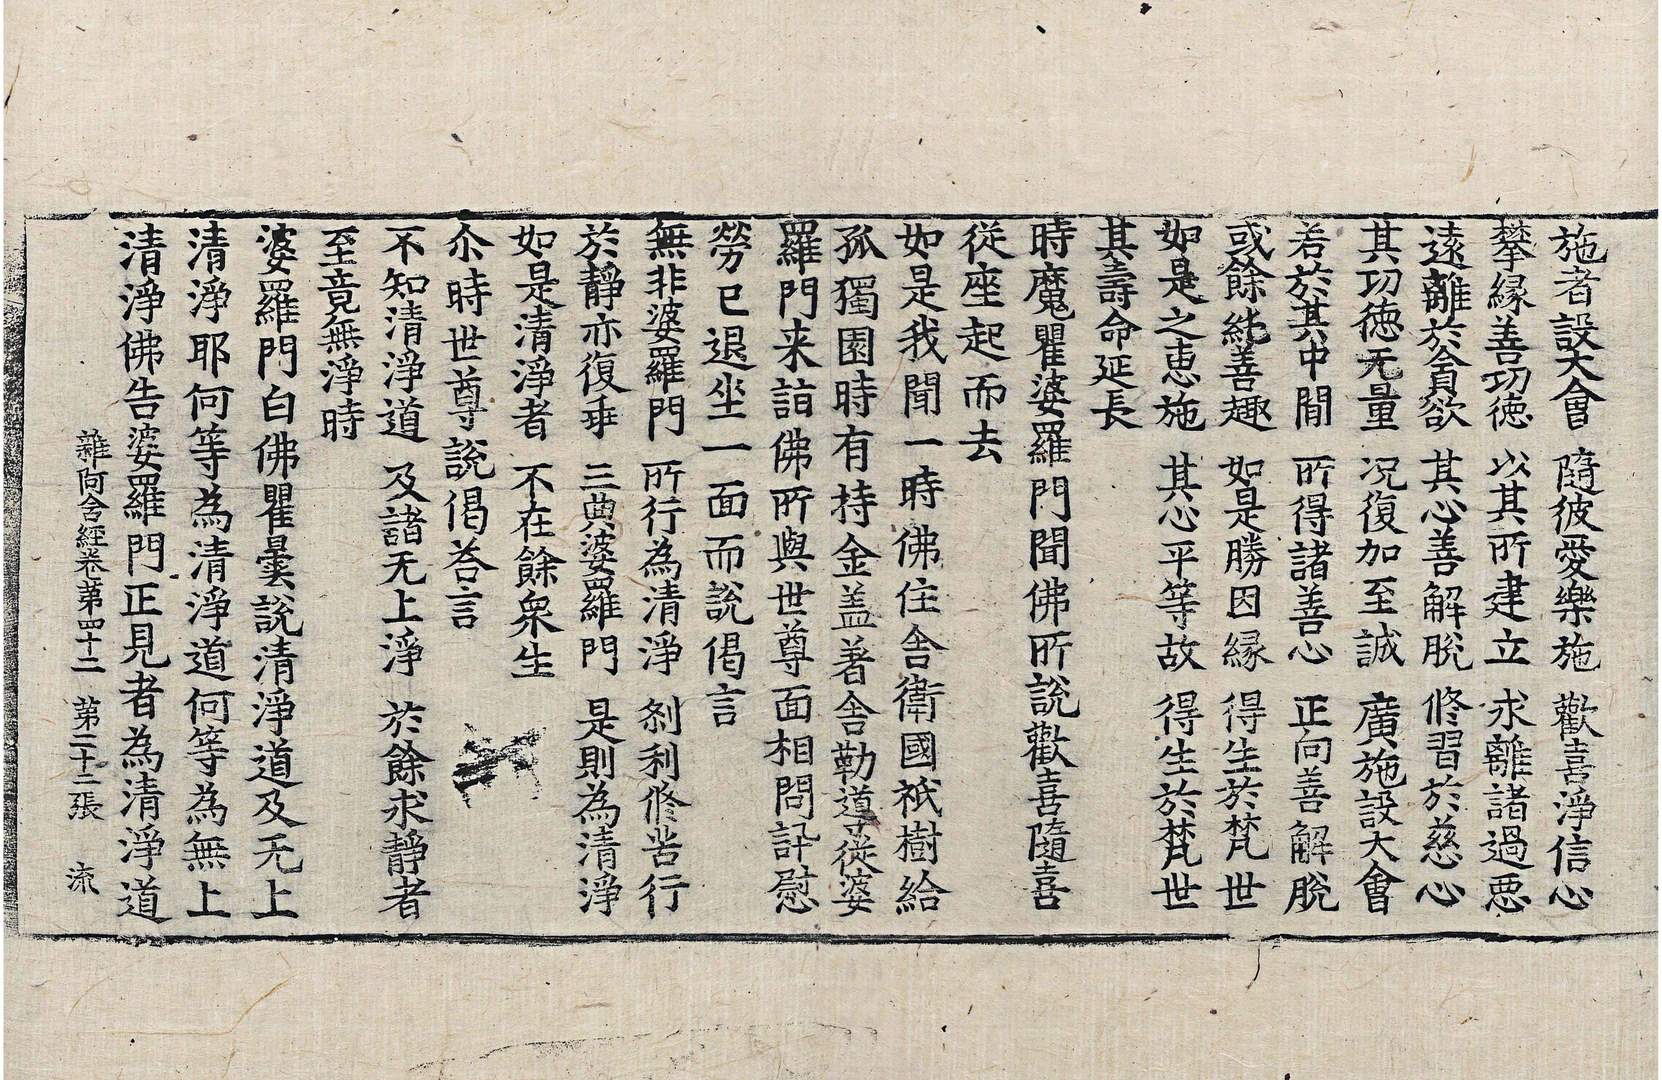 施者設大會　隨彼愛樂施　歡喜淨信心
攀縁善功徳　以其所建立　求離諸過惡
遠離於貪欲　其心善解脫　修習於慈心
其功徳无量　况復加至誠　廣施設大會
若於其中間　所得諸善心　正向善解脫
或餘純善趣　如是勝因縁　得生於梵世
如是之恵施　其心平等故　得生於梵世
其壽命延長
時魔瞿婆羅門聞佛所說歡喜隨喜
從座起而去
如是我聞一時佛住舍衛國祇樹給
孤獨園時有持金盖著舍勒道從婆
羅門来詣佛所與世尊面相問訊慰
勞已退坐一面而說偈言
無非婆羅門　所行為清淨　刹利修苦行
於靜亦復乖　三典婆羅門　是則為清淨
如是清淨者　不在餘衆生
尒時世尊說偈荅言
不知清淨道　及諸无上淨　於餘求靜者
至竟無淨時
婆羅門白佛瞿曇說清淨道及无上
清淨耶何等為清淨道何等為無上
清淨佛告婆羅門正見者為清淨道
雜阿含經卷第四十二　第二十二張　流